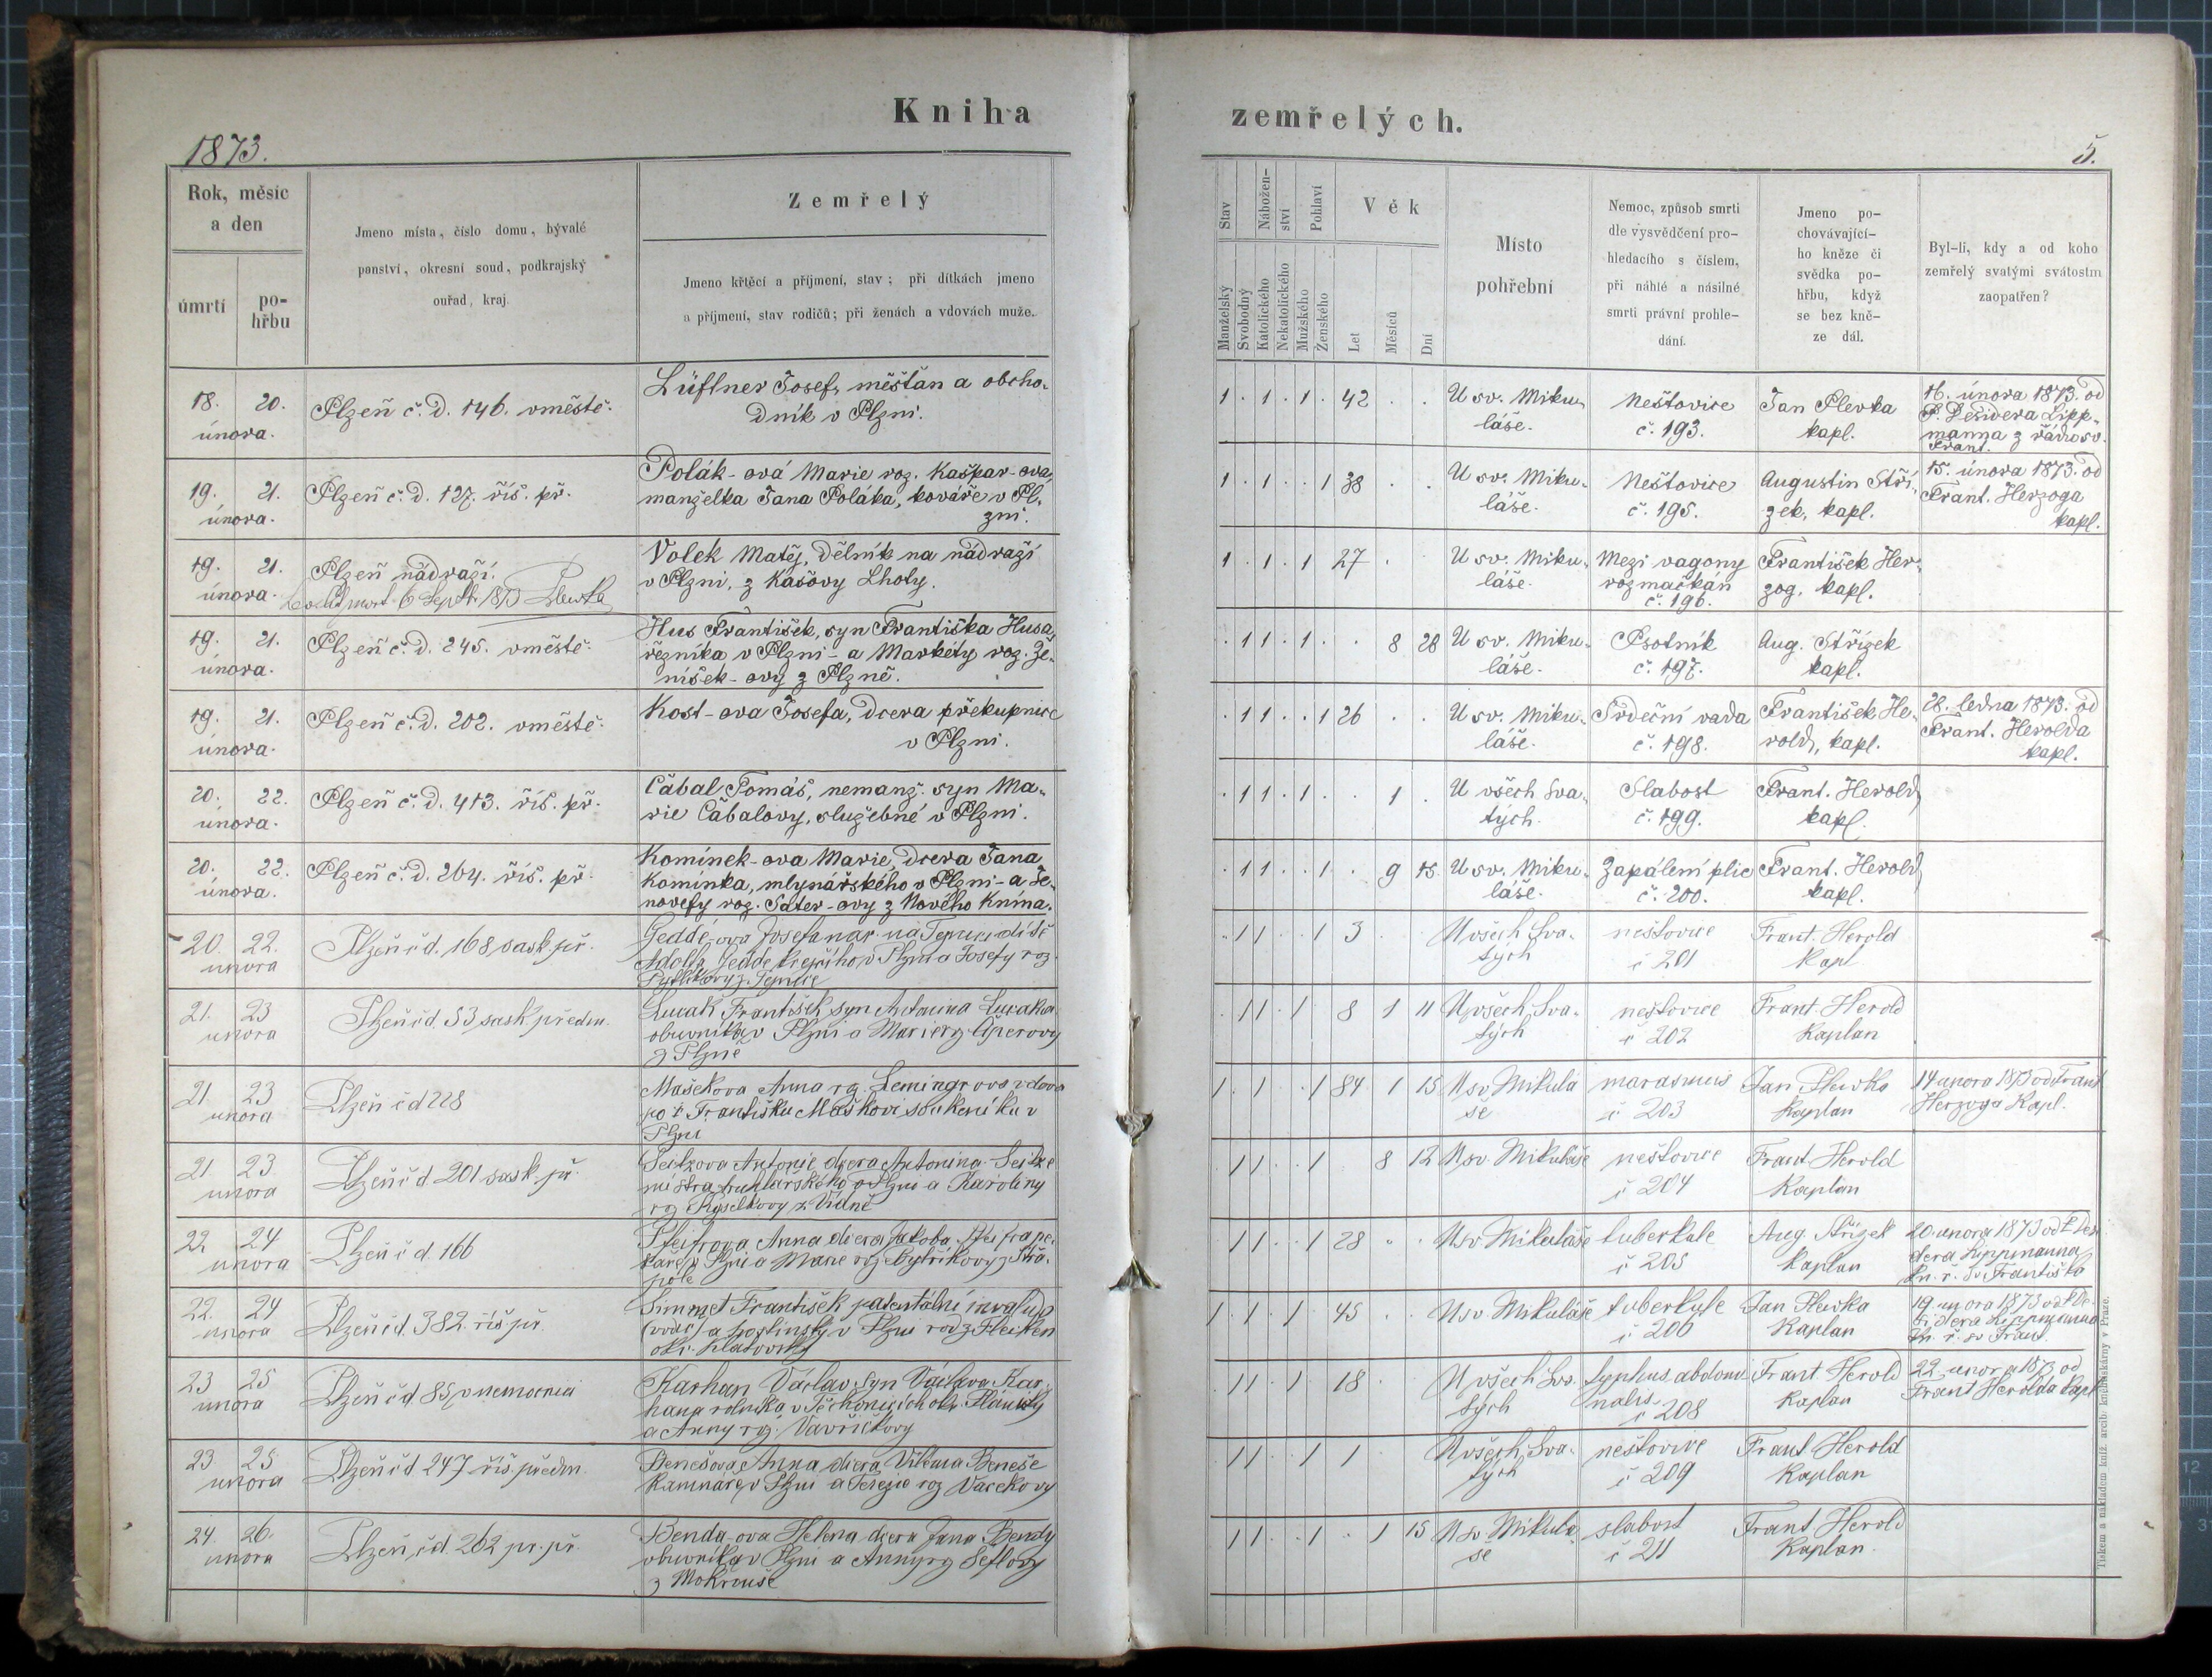 Kniha
zemřelých.
1873.
5.
Rok, měsíc
a den
úmrtí
po-
hřbu
Jmeno místa, číslo domu, bývalé
panství, okresní soud, podkrajský
ouřad, kraj.
Zemřelý
Jmeno křtěcí a příjmení, stav; při dítkách jmeno
a příjmení, stav rodičů; při ženách a vdovách muže.
Stav
Nábožen-
ství
Pohlaví
Věk
Manželský
Svobodný
Katolického
Nekatolického
Mužského
Ženského
Let
Měsíců
Dní
Místo
pohřební
Nemoc, způsob smrti
dle vysvědčení pro-
hledacího s číslem,
při náhlé a násilné
smrti právní prohle-
dání.
Jmeno po-
chovávající-
ho kněze či
svědka po-
hřbu, když
se bez kně-
ze dál.
Byl-li, kdy a od koho
zemřelý svatými svátostm
zaopatřen?
18. 20.
února.
Plzeň č. d. 146. vměstě.
Lüftner Josef, měšťan a obcho-
dník v Plzni.
1 . 1 . 1 . 42 . .
U sv. Miku-
láše.
Neštovice
č. 193.
Jan Plevka
kapl.
16. února 1873. od
P. Desidera Lipp-
manna z řádu sv.
Frant.
19. 21.
února.
Plzeň č. d. 127. říš. př.
Polák-ová Marie roz. Kašpar-ova,
manželka Jana Poláka, kováře v Pl-
zni.
1 . 1 . . 1 38 . .
U sv. Miku-
láše.
Neštovice
č. 195.
Augustin Stří-
zek, kapl.
15. února 1873. od
Frant. Herzoga
kapl.
19. 21.
února.
Plzeň nádraží.
6 Sept. 1873 Plewka
Volek Matěj, dělník na nádraží
v Plzni, z Kašovy Lhoty.
1 . 1 . 1 27 .
U sv. Miku-
láše.
Mezi vagony
rozmačkán
č. 196.
František Her-
zog, kapl.
19. 21.
února.
Plzeň č. d. 245. vměstě.
Hus František, syn Františka Husa,
řezníka v Plzni - a Markety roz. Je-
níšek-ovy z Plzně.
. 1 1 . 1 . . 8 28
U sv. Miku-
láše.
Psotník
č. 197.
Aug. Střízek
kapl.
19. 21.
února.
Plzeň č. d. 202. vměstě.
Kost-ova Josefa, dcera překupnice
v Plzni.
. 1 1 . . 1 26 . .
U sv. Miku-
láše.
Srdeční vada
č. 198.
František He-
rold, kapl.
28. ledna 1873. od
Frant. Herolda
kapl.
20. 22.
února.
Plzeň č. d. 413. říš. př.
Cábal Tomáš, nemanž. syn Ma-
rie Cábalovy, služebné v Plzni.
. 1 1 . 1 . . 1 .
U všech Sva-
tých.
Slabost
č. 199.
Frant. Herold,
kapl.
20. 22.
února.
Plzeň č. d. 264. říš. př.
Komínek-ova Marie, dcera Jana
Komínka, mlynářského v Plzni - a Je-
novefy roz. Šater-ovy z Nového Knína.
. 1 1 . . 1 . 9 15
U sv. Miku-
láše.
Zapálení plic
č. 200.
Frant. Herold,
kapl.
20. 22.
unora
Plzeň č d. 168 sask př.
Gedde-ova Josefa nar. na dítě
Adolfa Gedde v Plzni a Josefy roz
. 1 1 . . 1 3
U všech Sva-
tých
neštovice
č 201
Frant. Herold
Kapl
21. 23
unora
Plzeň č d 53 sask předm.
František syn Antonina
obuvníka v Plzni a Marie rz
z Plzně
. 1 1 . 1 . 8 1 11
U všech Sva-
tých
neštovice
č 202
Frant. Herold
Kaplan
21 23
unora
Plzeň č d 228
Mašekova Anna rz. vdova
po † Františku Maškovi soukeníku v
Plzni
1 . 1 . . 1 84 1 15
U sv Mikula
še
marasmus
č 203
Jan Plevka
Kaplan
14 unora 1873 od Frant
Herzoga Kapl.
21 23
unora
Plzeň č d 201 sask. př.
Seitzova Antonie dcera Antonina Seitze
mistra truhlarského v Plzni a Karoliny
rz z Vidně
. 1 1 . . 1 . 8 12
U sv. Mikuláše
neštovice
č 204
Frant Herold
Kaplan
22. 24
unora
Plzeň č d. 166
Anna dcera Jakoba pe-
kaře v Plzni a Marie rz
. 1 1 . . 1 28 . .
U sv Mikuláše
tuberkule
č 205
Aug. Střízek
Kaplan
20. unora 1873 od P Desi
dera Lippmanna
kn. ř. sv. Františka
22. 24
unora
Plzeň č d. 382. říš př.
Simmet František patentální invalida
(vdov) a hostinský v Plzni
okr. Klatovský
1 . 1 . 1 . 45 . .
U sv Mikuláše
tuberkule
č 206
Jan Plevka
Kaplan
19. unora 1873 od P De-
sidera Lippmanna
kn. ř. sv Frant.
23 25
unora
Plzeň č d 85 v nemocnici
Karhan Václav, syn Václava Kar-
hana rolníka v Těchonicích okr. Plánický
a Anny rz. Vavřičkovy
. 1 1 . 1 . 18
U všech Sva.
tých
typhus abdomi
nalis
č 208
Frant Herold
Kaplan
22 unora 1873 od
Frant Herolda Kapl
23 25
unora
Plzeň č d 247 říš. předm.
Benešova Anna dcera Viléma Beneše
kamnáře v Plzni a Terezie rz Vacekovy
. 1 1 . . 1 1
U všech Sva-
tých
neštovice
č 209
Frant. Herold
Kaplan
24. 26.
unora
Plzeň, č d. 262 pr. př.
Benda-ova Helena dcera Jana Bendy
obuvníka v Plzni a Anny rz Šeflovy
z Mokrouše
. 1 1 . . 1 . 1 15
U sv Mikula-
še
slabost
č 211
Frant. Herold
Kaplan.
Tiskem a nákladem kníž. arcib. knihtiskárny v Praze.